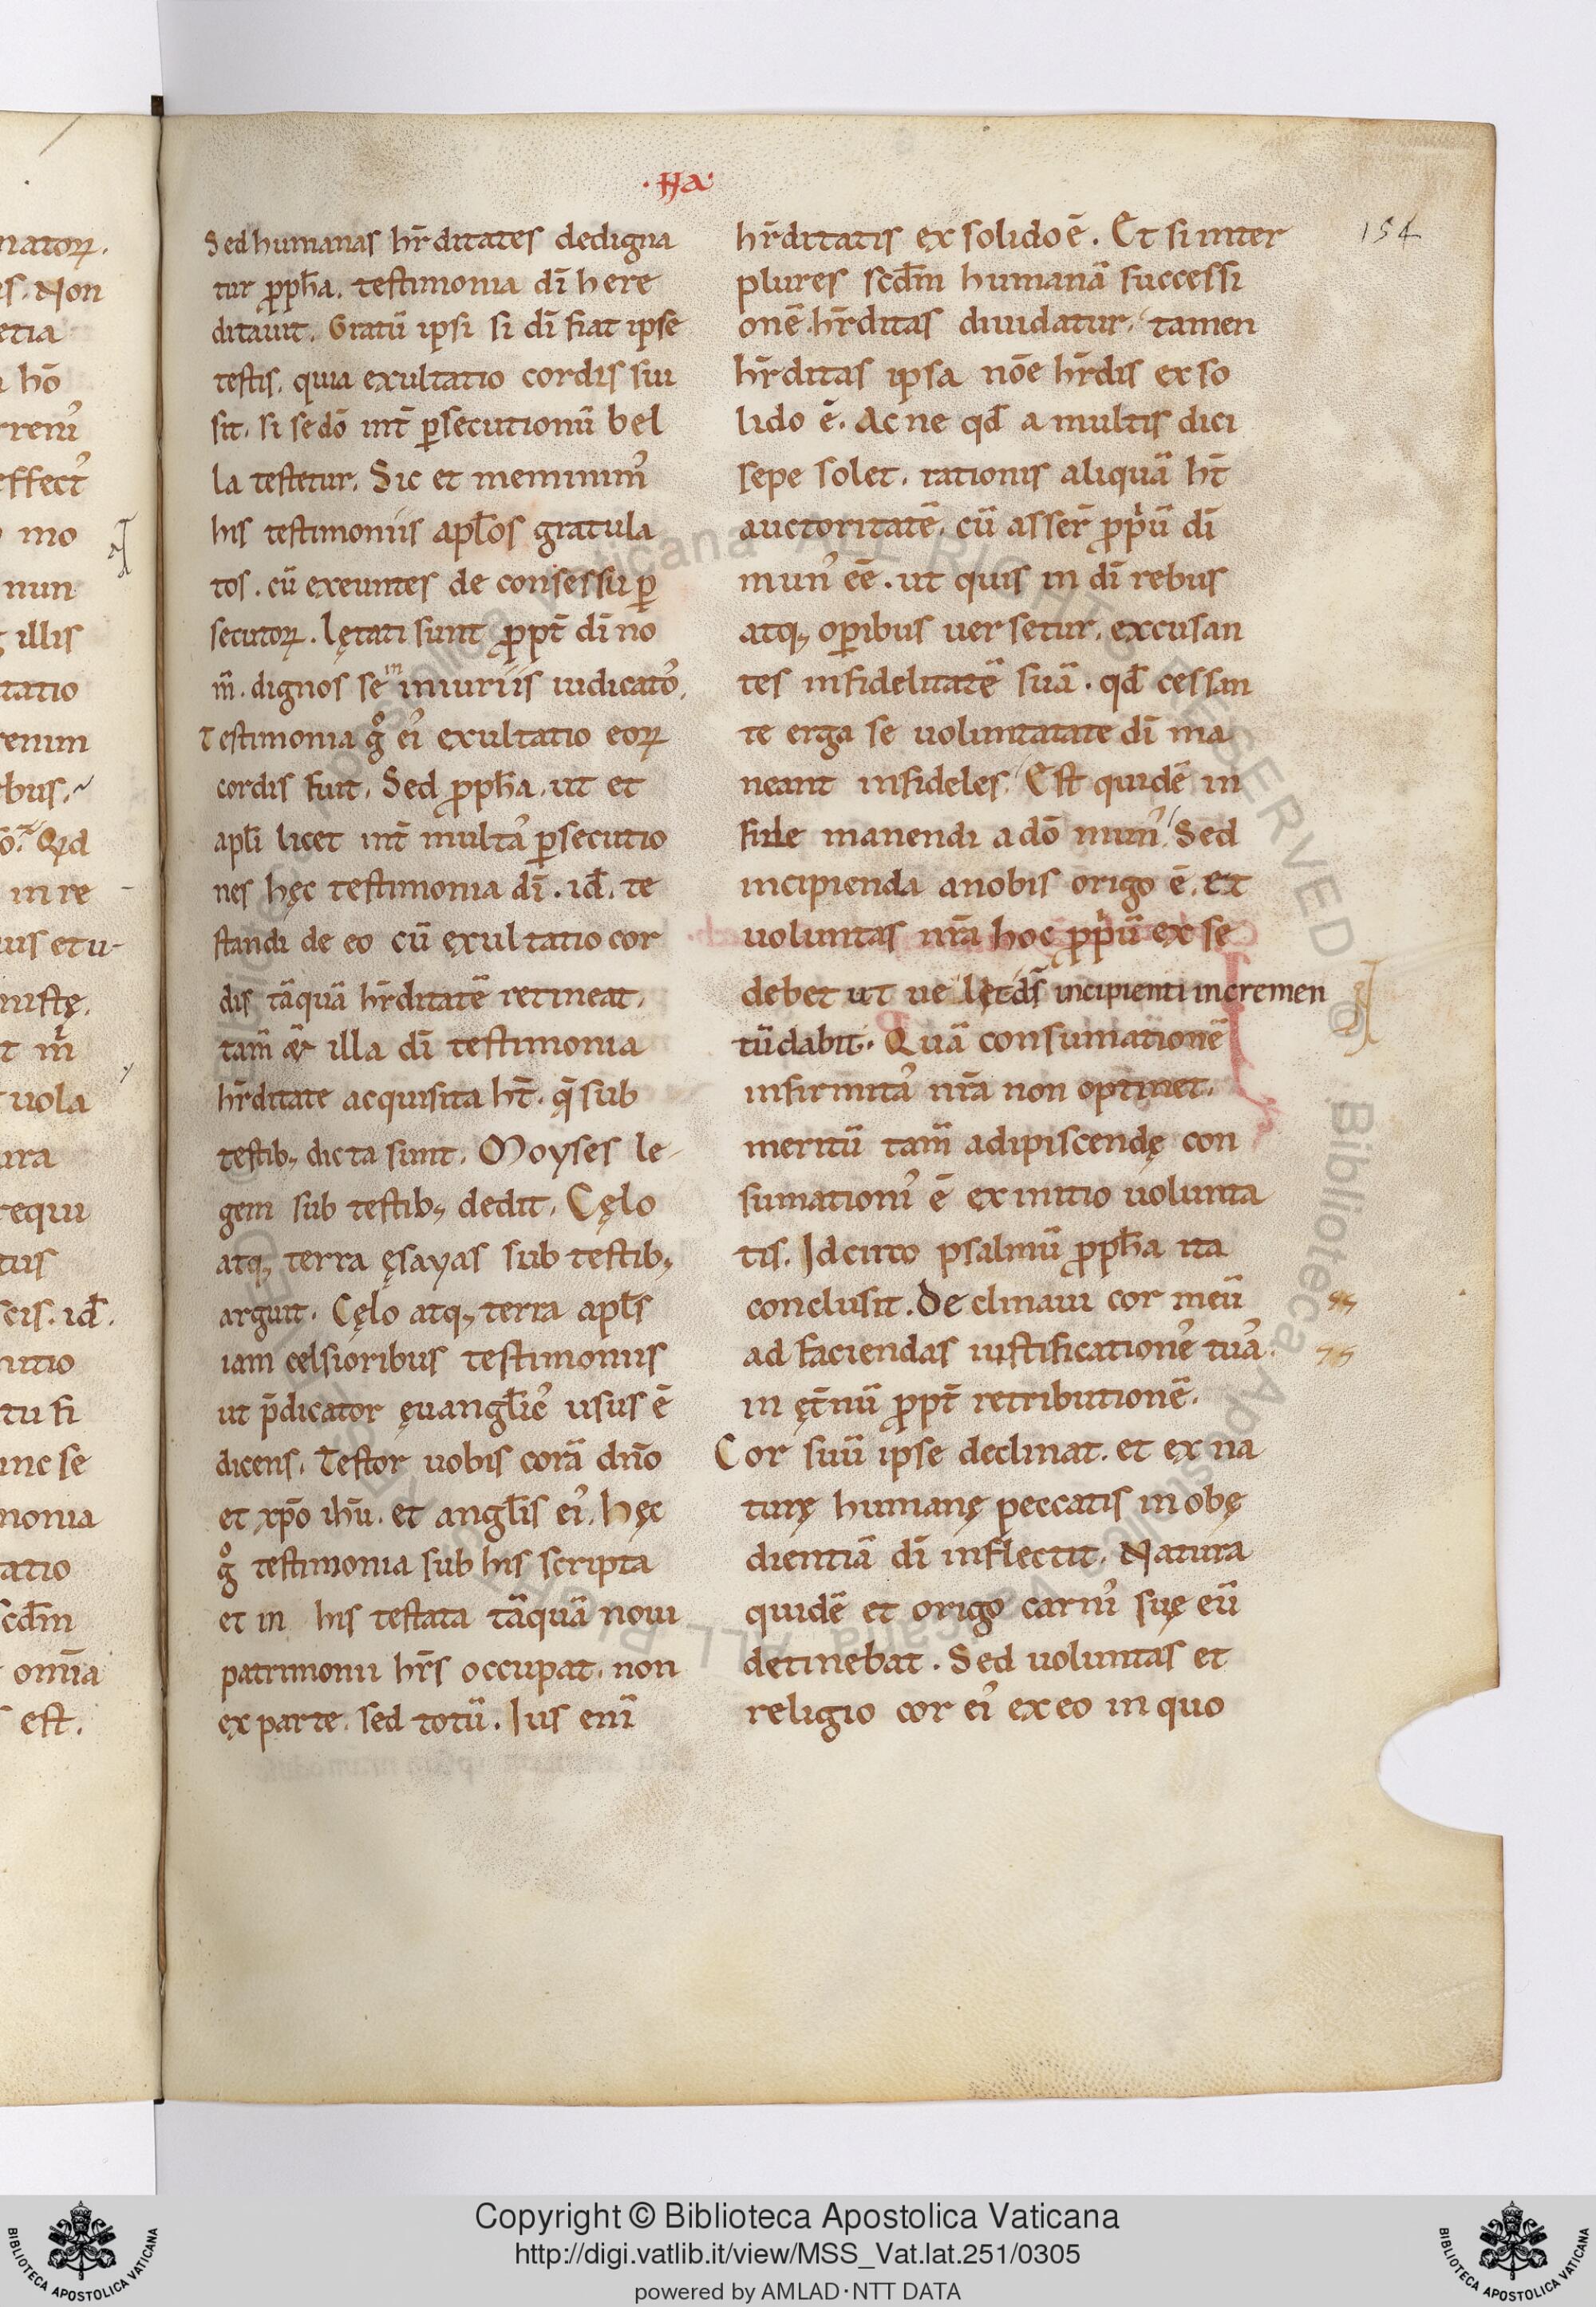 ·Na·
154
Sed humanas hr̄ditates dedigna
tur ꝓph̄a. testimonia dī here
ditauit. Gratū ipsi si dī fiat ipse
testis. quia exultatio cordis sui
sit. si se dō int̄ ꝑsecutionū bel
la testetur. Sic et meminimꝰ
his testimoniis apl̄os gratula
tos. cū exeuntes de consessu ꝑ
secutoꝝ. lętati sunt ꝓpt̄ dī no
m̄. dignos se in iniuriis iudicatoꝰ.
Testimonia gͦ eiꝰ exultatio eoꝝ
cordis fuit. Sed ꝓph̄a. ut et
apl̄i licet int̄ multaꝰ ꝑsecutio
nes hęc testimonia dī. id̄. te
standi de eo cū exultatio cor
dis tāquā hr̄ditatē retineat.
tam̄ & illa dī testimonia
hr̄ditate acquisita ht̄. q̄ sub
testibꝫ dicta sunt. Moyses le-
gem sub testibꝫ dedit. Cęlo
atqꝫ terra ęsayas sub testibꝫ
arguit. Cęlo atqꝫ terra apl̄s
iam celsioribus testimoniis
ut p̄dicator ęuangl̄icꝰ usus ē
dicens. Testor uobis corā dn̄o
et xp̄o ih̄u. et angl̄is eiꝰ. hęc
gͦ testimonia sub his scripta
et in his testata tāquā noui
patrimonii hr̄s occupat. non
ex parte. sed totū. Ius enī
hr̄ditatis ex solido ē. Et si inter
plures scd̄m humanā successi
onē hr̄ditas diuidatur. tamen
hr̄ditas ipsa nōe hr̄dis ex so
lido ē. Ac ne qd̄ a multis dici
sepe solet. rationis aliquā ht̄
auctoritatē. cū asser̄ ꝓpͥū dī
munꝰ eē. ut quis in dī rebus
atqꝫ oꝑibus uersetur. excusan
tes infidelitatē suā. qd̄ cessan
te erga se uoluntatate dī ma
neant infideles. Est quidē in
fide manendi a dō munꝰ. Sed
incipienda a nobis origo ē. et
uoluntas nr̄a hoc ꝓpͥū ex se
debet ut uelęt d̄s incipienti incremen
tū dabit. Quā consumationē
infirmitaꝰ nr̄a non optinet.
meritū tam̄ adipiscendę con
sumationiꝰ ē ex initio uolunta
tis. Idcirco psalmū ꝓph̄a ita
conclusit. Declinaui cor meū
ad faciendas iustificationeꝰ tuaꝰ.
in ęt̄nū ꝓpt̄ retributionē.
Cor suū ipse declinat. et ex na
turę humanę peccatis in obę
dientiā dī inflectit. Natura
quidē et origo carniꝰ suę eū
detinebat. Sed uoluntas et
religio cor eiꝰ ex eo in quo
Copyright © Biblioteca Apostolica Vaticana
http://digi.vatlib.it/view/MSS_Vat.lat.251/0305
powered by AMLAD·NTT DATA